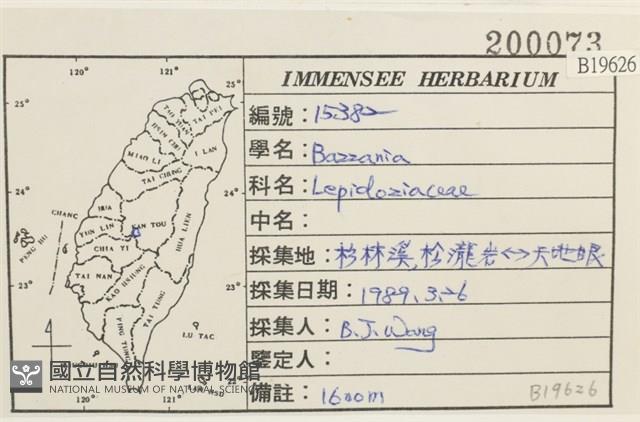 200073
B19626
IMMENSEE HERBARIUM
編號：15382
學名：Bazzania
科名：Lepidoziaceae
中名：
採集地：杉林溪，松瀧岩<->天地眼
採集日期：1989.3.26
採集人：B.J.Wang
鑒定人：
備註：1600m
B19626
120° 121°
25° 25°
TAI PEI
I LAN
MIAO LI
TAI CHUNG
24° 24°
CHANG HUA
NAN TOU
HUA LIEN
YUN LIN
PENG HU
CHIA YI
TAI NAN
KAO HSIUNG
TAI TUNG
23° 23°
PING TUNG
LU TAO
國立自然科學博物館
NATIONAL MUSEUM OF NATURAL SCIENCE
120° 121°